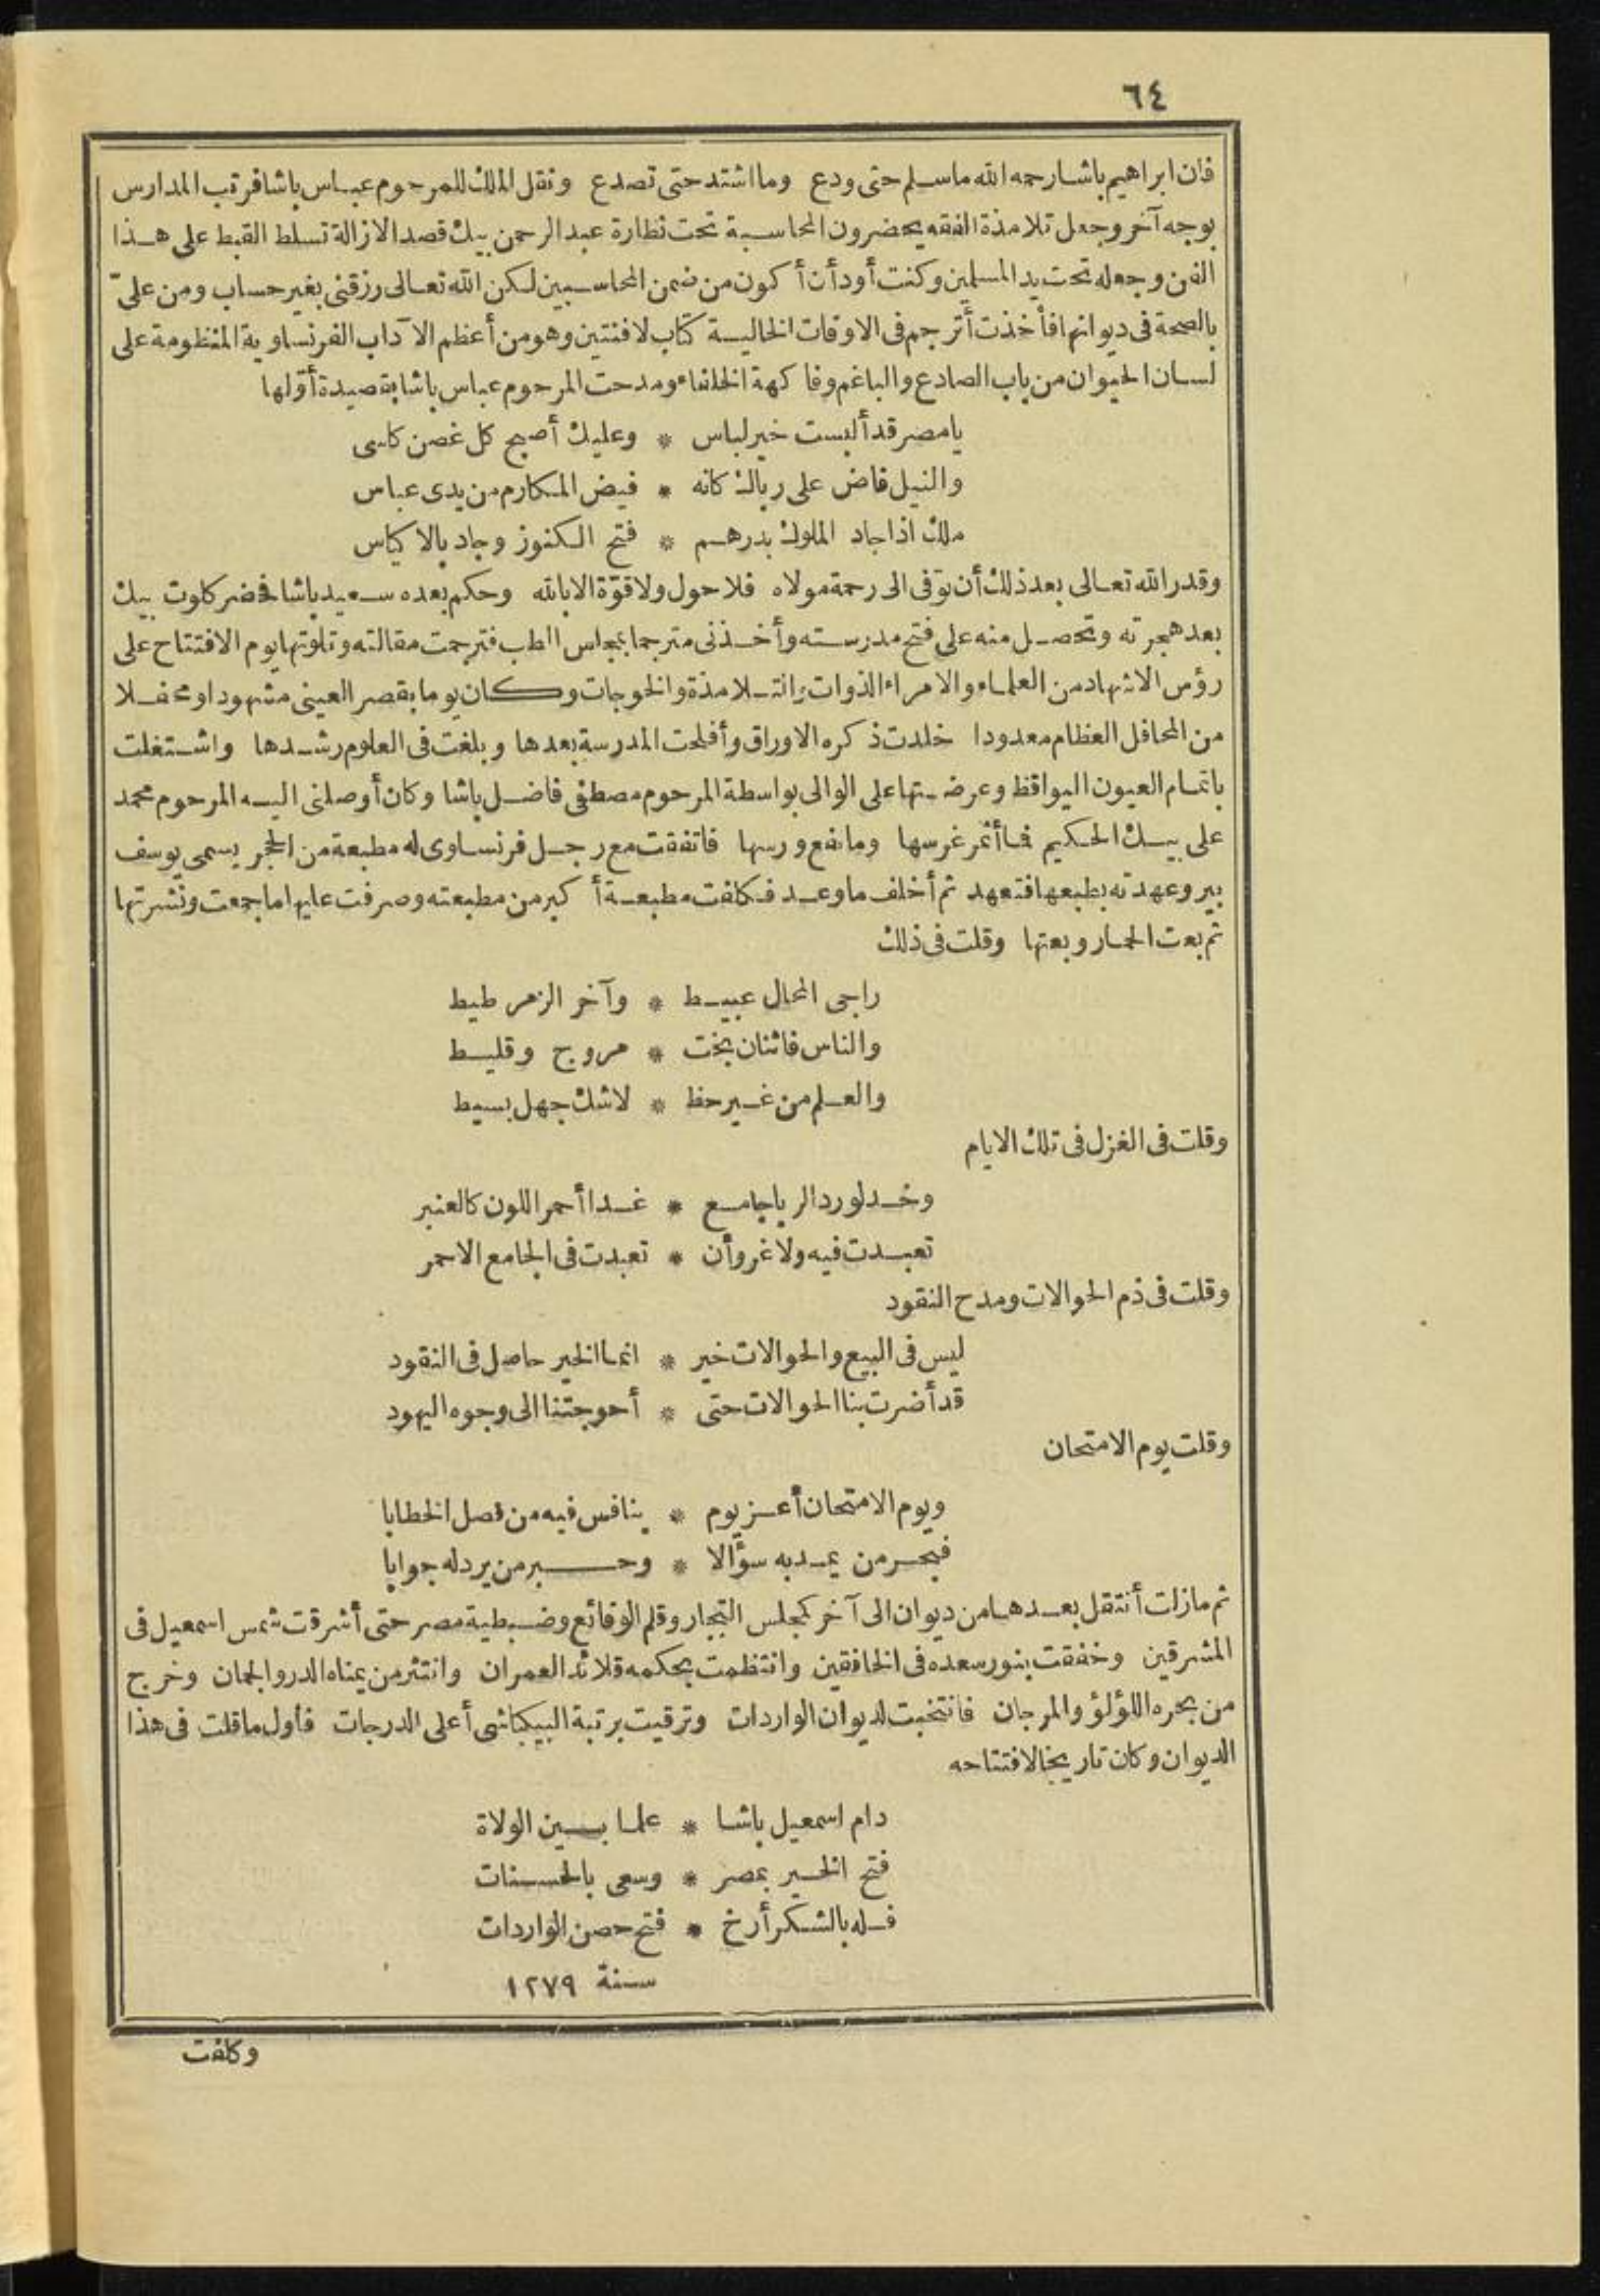 ٦٤
فان ابراهيم باشا رحمه الله ما سلم حتى ودع وما اشتد حتى تصدع ونقل الملك للمرحوم عباس باشا فرتب المدارس
بوجه آخر وجعل تلامذة الفقه يحضرون المحاسبة تحت نظارة عبد الرحمن بيك قصد الازالة تسلط القبط على هذا
الفن وجعله تحت يد المسلمين وكنت أود أن أكون من ضمن المحاسبين لكن الله تعالى رزقنى بغير حساب ومن علىّ
بالصحة فى ديوانها فأخذت أترجم فى الاوقات الخالية كتاب لافنتين وهو من أعظم الآداب الفرنساوية المنظومة على
لسان الحيوان من باب الصادع والباغم وفاكهة الخلفاء ومدحت المرحوم عباس باشا بقصيدة أوّلها
يا مصر قد ألبست خير لباس * وعليك أصبح كل غصن كاسى
والنيل فاض على رباك كانه * فيض المكارم من يدى عباس
ملك اذا جاد الملوك بدرهم * فتح الكنوز وجاد بالاكياس
وقدر الله تعالى بعد ذلك أن توفى الى رحمة مولاه فلا حول ولا قوّة الا بالله وحكم بعده سعيد باشا فحضر كلوت بيك
بعد هجرته وتحصل منه على فتح مدرسته وأخذنى مترجما بمجلس الطب فترجمت مقالته وتلوتها يوم الافتتاح على
رؤس الاشهاد من العلماء والامراء الذوات والتلامذة والخوجات وكان يوما بقصر العينى مشهودا ومحفلا
من المحافل العظام معدودا خلدت ذكره الاوراق وأفلحت المدرسة بعدها وبلغت فى العلوم رشدها واشتغلت
باتمام العيون اليواقظ وعرضتها على الوالى بواسطة المرحوم مصطفى فاضل باشا وكان أوصلنى اليه المرحوم محمد
على بيك الحكيم فما أثمر غرسها وما نفع ورسها فاتفقت مع رجل فرنساوى له مطبعة من الحجر يسمى يوسف
بير وعهدته بطبعها فتعهد ثم أخلف ما وعد فكلفت مطبعة أكبر من مطبعته وصرفت عليها ما جمعت ونشرتها
ثم بعت الحمار وبعتها وقلت فى ذلك
راجى المحال عبيط * وآخر الزمر طيط
والناس فاثنان بخت * مروج وقليط
والعلم من غير حظ * لاشك جهل بسيط
وقلت فى الغزل فى تلك الايام
وخد لورد الربا جامع * غدا أحمر اللون كالعنبر
تعبدت فيه ولا غرو أن * تعبدت فى الجامع الاحمر
وقلت فى ذم الحوالات ومدح النقود
ليس فى البيع والحوالات خير * انما الخير حاصل فى النقود
قد أضرت بنا الحوالات حتى * أحوجتنا الى وجوه اليهود
وقلت يوم الامتحان
ويوم الامتحان أعز يوم * ينافس فيه من فصل الخطابا
فبحر من يمد به سؤالا * وحبر من يرد له جوابا
ثم مازلت أنتقل بعدها من ديوان الى آخر كمجلس التجار وقلم الوقائع وضبطية مصر حتى أشرقت شمس اسمعيل فى
المشرقين وخفقت بنور سعده فى الخافقين وانتظمت بحكمه قلائد العمران وانتثر من يمناه الدر والجمان وخرج
من بحره اللؤلؤ والمرجان فانتخبت لديوان الواردات وترقيت برتبة البيكباشى أعلى الدرجات فأول ما قلت فى هذا
الديوان وكان تاريخا لافتتاحه
دام اسمعيل باشا * علما بين الولاة
فتح الخير بمصر * وسعى بالحسنات
فله بالشكر أرخ * فتح حصن الواردات
سنة ١٢٧٩
وكلفت